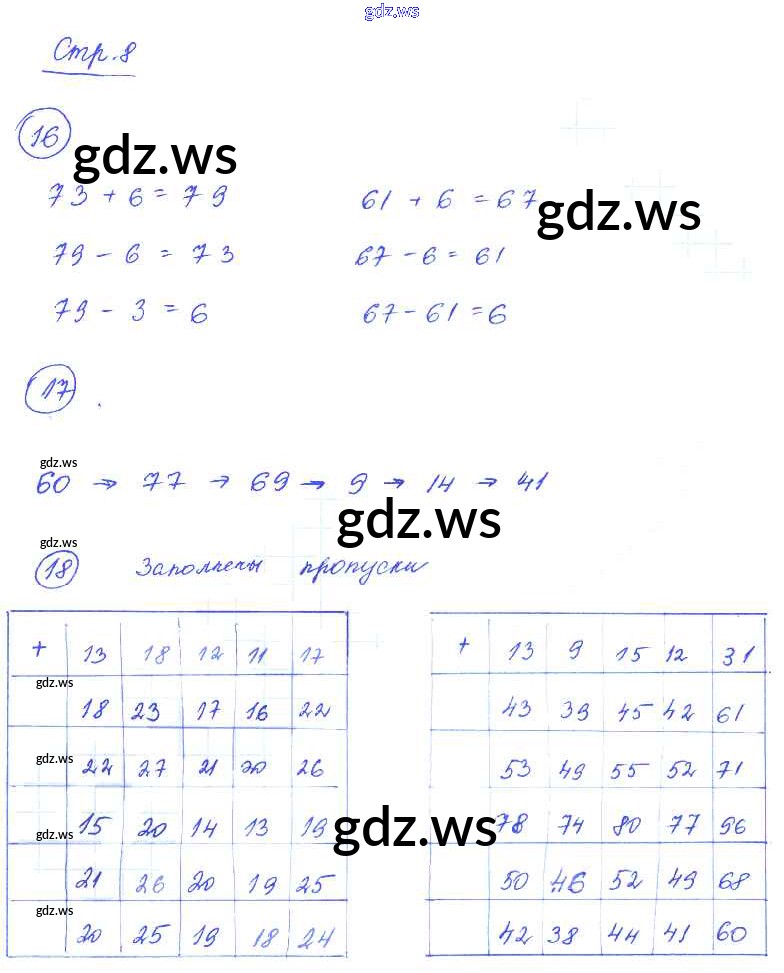 gdz.ws
Стр. 8
16
gdz.ws
73 + 6 = 79 61 + 6 = 67
gdz.ws
79 - 6 = 73 67 - 6 = 61
79 - 3 = 6 67 - 61 = 6
17 .
gdz.ws
60 → 77 → 69 → 9 → 14 → 41
gdz.ws
gdz.ws
18 Заполнены пропуски
+ 13 18 12 11 17 + 13 9 15 12 31
gdz.ws
18 23 17 16 22 43 39 45 42 61
gdz.ws
22 27 21 20 26 53 49 55 52 71
gdz.ws
gdz.ws
15 20 14 13 19 78 74 80 77 96
21 26 20 19 25 50 46 52 49 68
gdz.ws
20 25 19 18 24 42 38 44 41 60